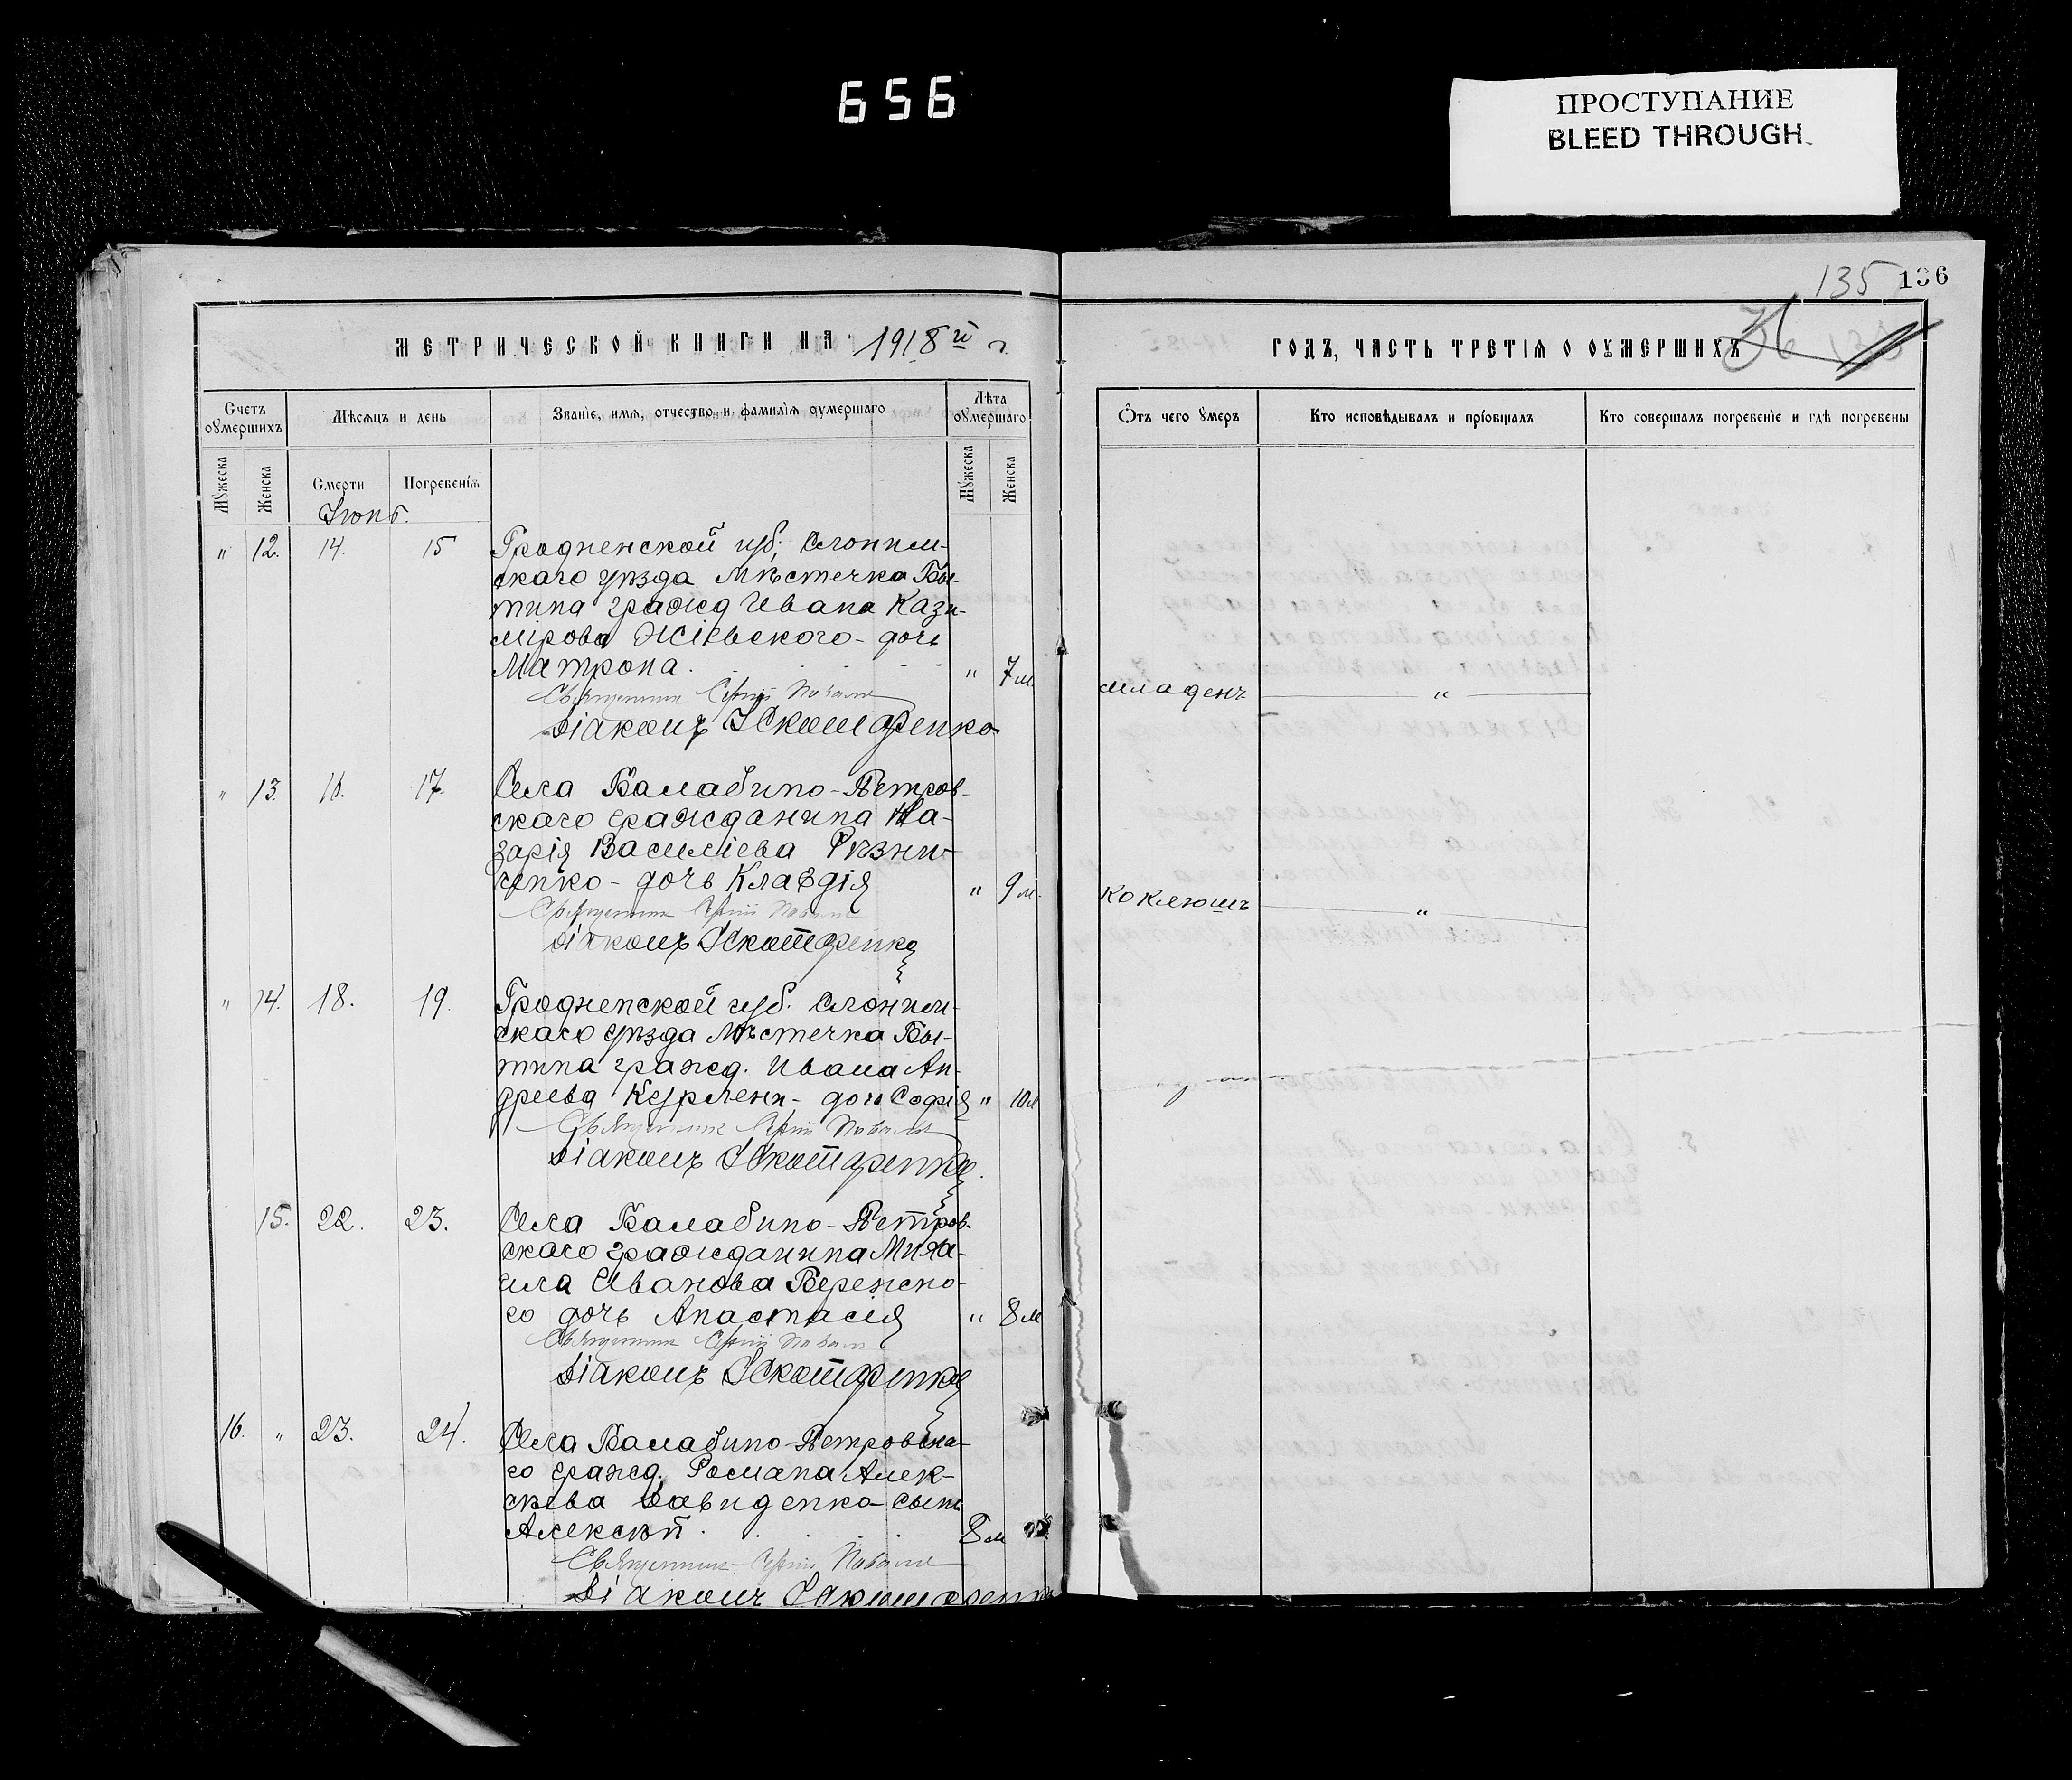 656
ПРОСТУПАНИЕ
BLEED THROUGH
135 136
МЕТРИЧЕСКОЙ КНИГИ НА 1918 й г.
ГОДЪ, ЧАСТЬ ТРЕТІЯ О ОУМЕРШИХЪ
36
Счетъ оумершихъ
Мѣсяцъ и день
Званіе, имя, отчество и фамилія оумершаго
Лѣта оумершаго
Ѿтъ чего оумеръ
Кто исповѣдывалъ и пріобщалъ
Кто совершалъ погребеніе и гдѣ погребены
Мужеска
Женска
Смерти
Погребенія
Мужеска
Женска
Іюнь.
" 12. 14. 15 Гродненской губ; Слоним-
скаго уѣзда Мѣстечка Бы-
тина гражд Ивана Кази-
мірова дочь
Матрона. " 7 м. младенч "
Священник Сергій
Діаконъ
" 13. 16. 17. Села Балабино-Петров-
скаго гражданина На-
зарія Василіева Рѣзни-
ченко - дочь Клавдія " 9 м. коклюшъ "
Священник Сергій
Діаконъ
" 14. 18. 19. Гродненской губ. Слоним-
скаго уѣзда Мѣстечка Бы-
тина гражд. Ивана Ан-
дреева дочь Софія " 10 м
Священник Сергій
Діаконъ
15. 22. 23. Села Балабино-Петров-
скаго гражданина Миха-
ила Иванова Бережно-
го дочь Анастасія " 8 м
Священник Сергій
Діаконъ
16. " 23. 24. Села Балабино-Петровска-
го гражд. Романа Алек-
сѣева Давиденко-сынъ
Алексѣй. 8 м "
Священник Сергій
Діаконъ